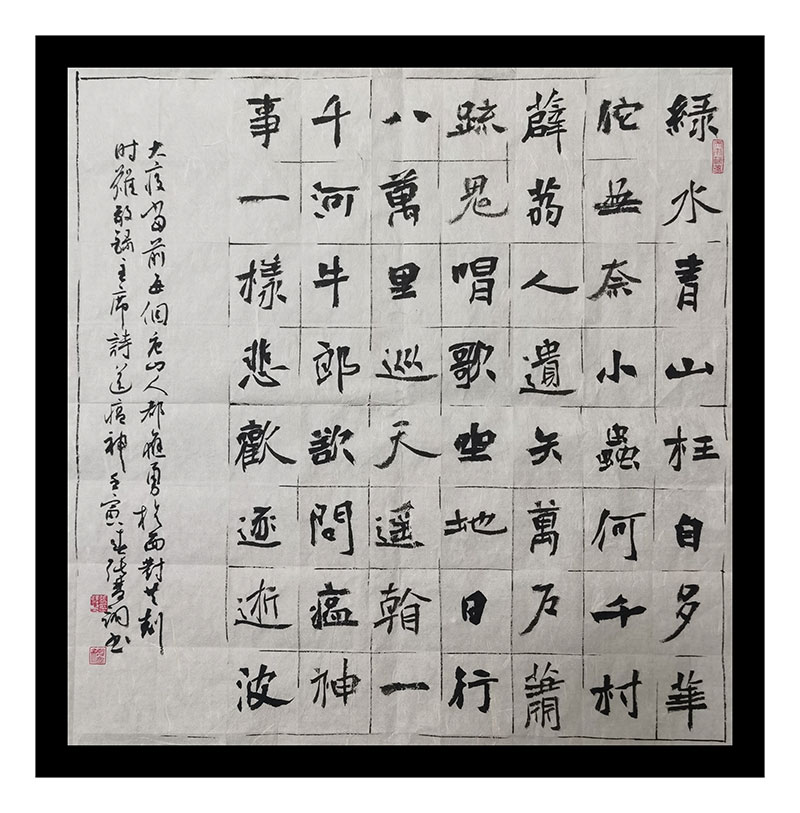 綠水青山枉自多華
佗無奈小蟲何千村
薜荔人遺矢萬戶蕭
疏鬼唱歌坐地日行
八萬里巡天遥看一
千河牛郎欲問瘟神
事一樣悲歡逐逝波
大疫当前每個山人都應勇於面對共剋
时艱敬録主席詩送瘟神壬寅春張书